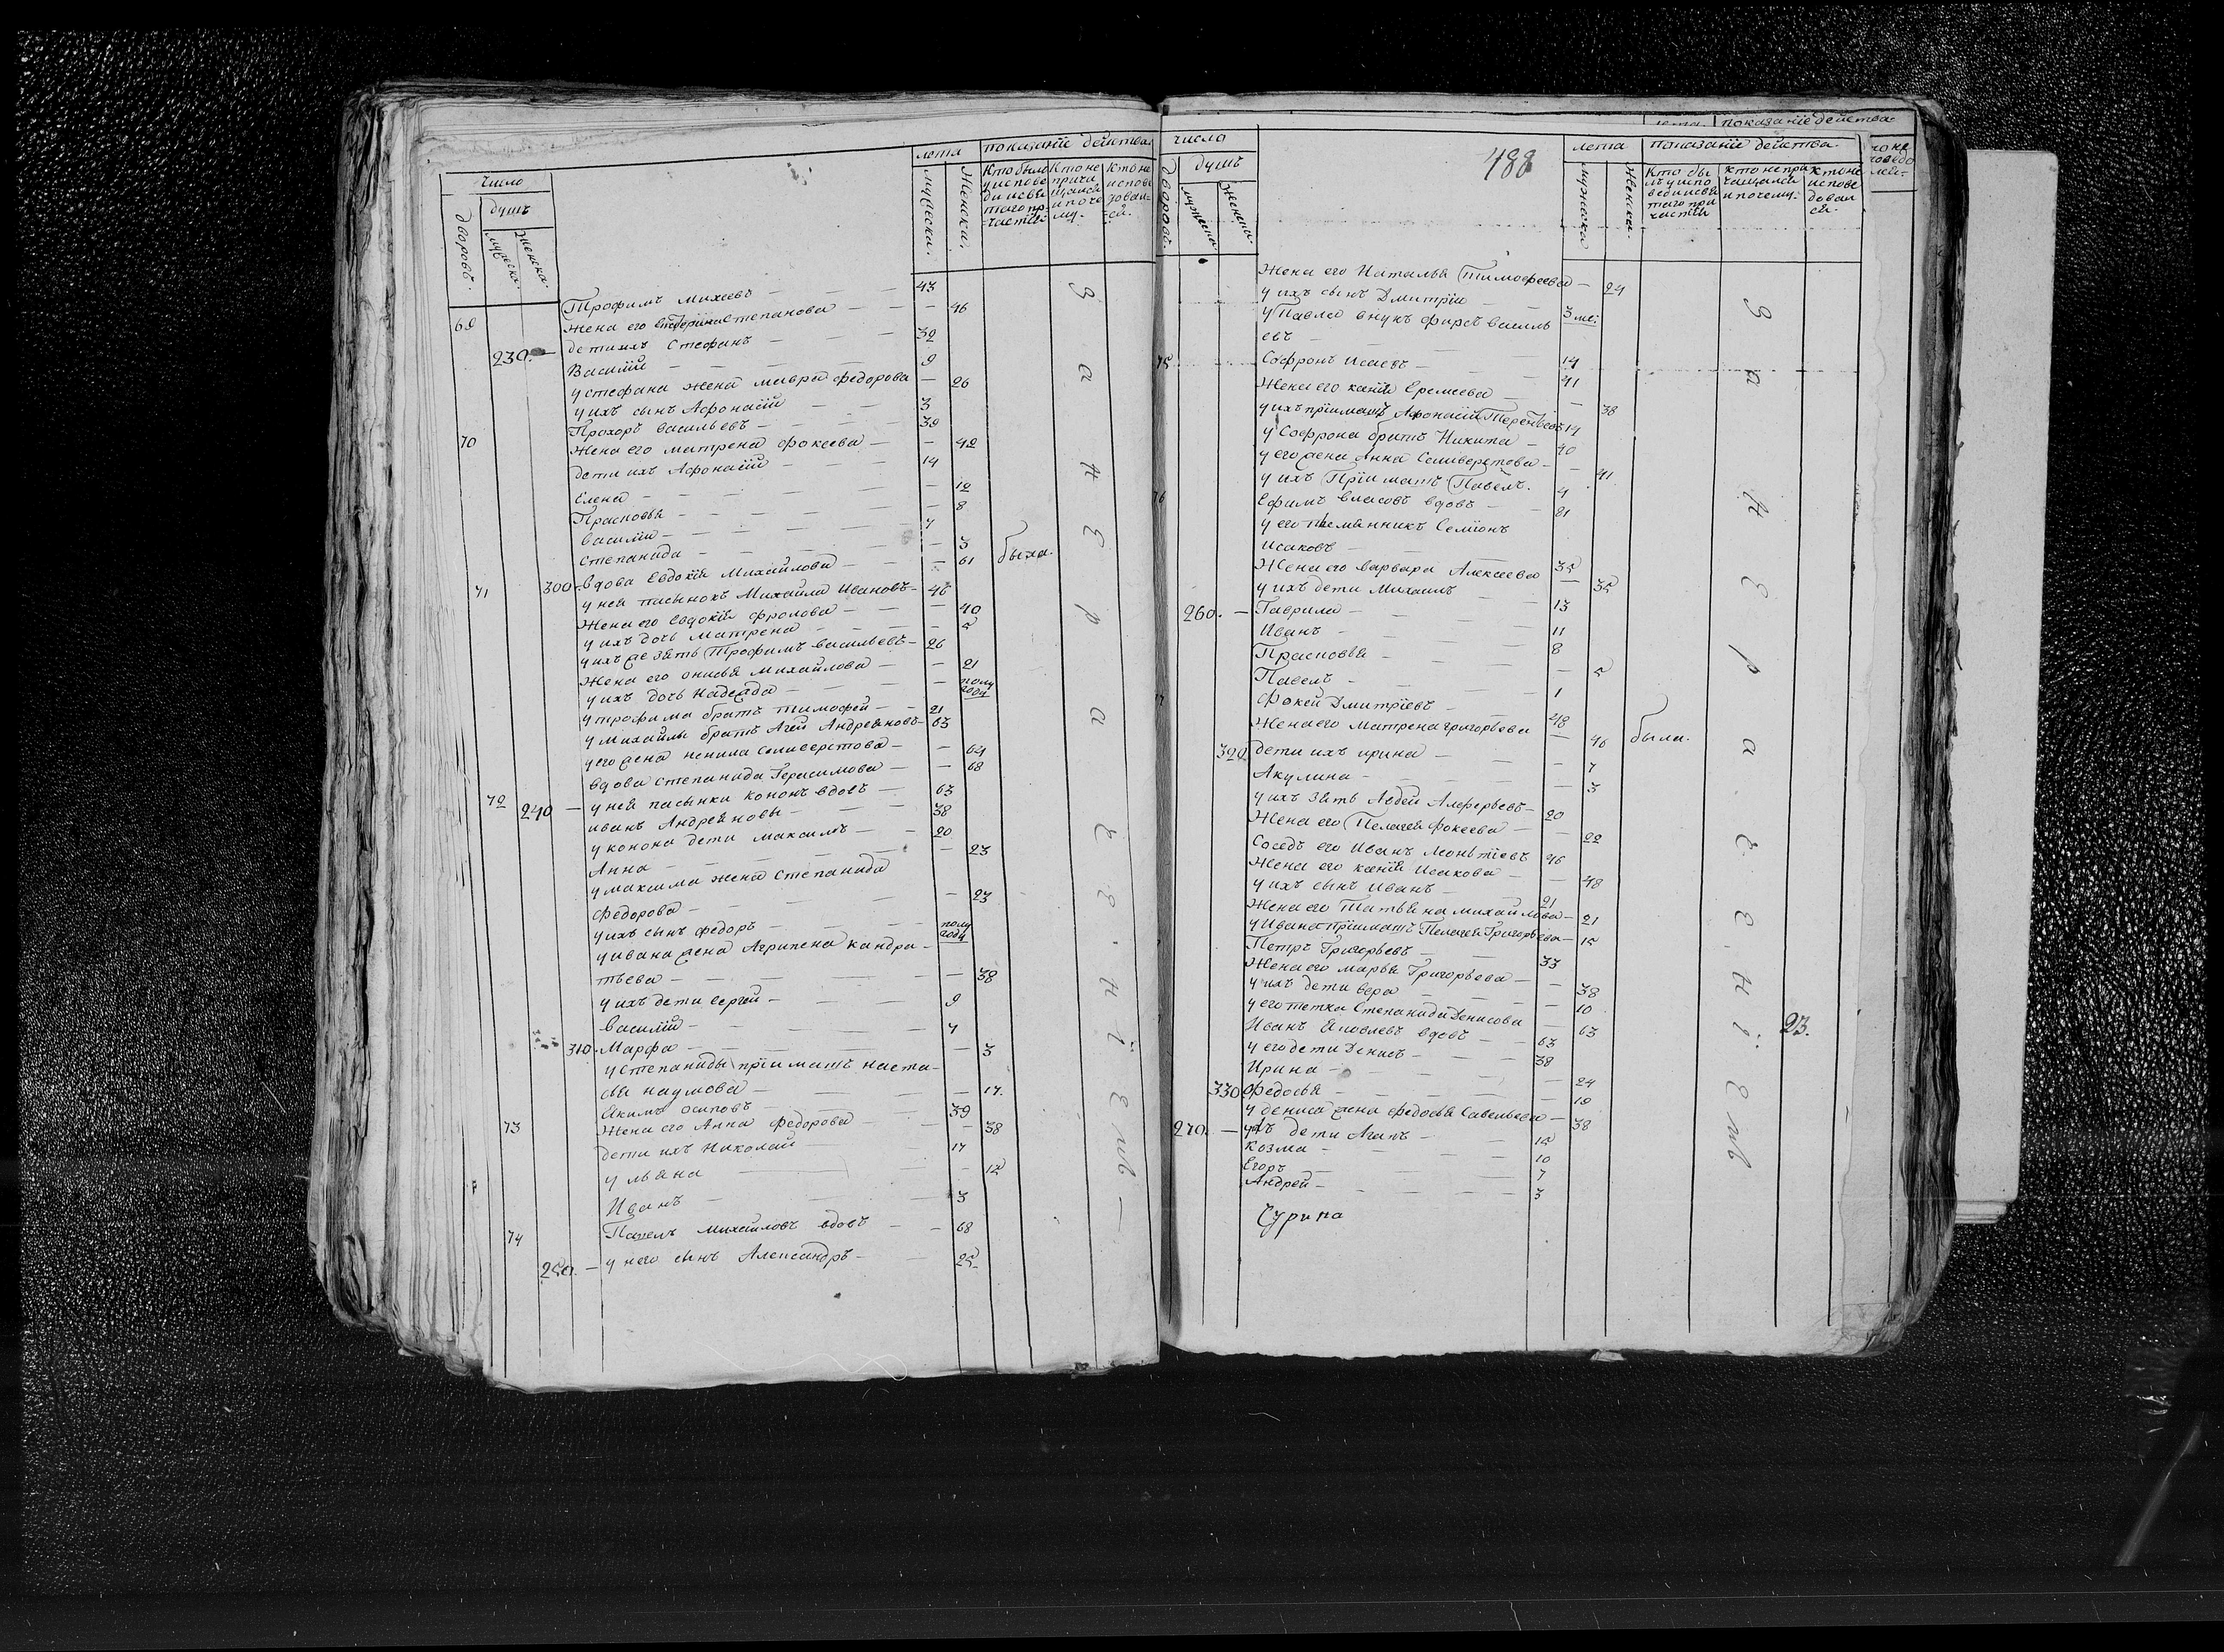 Число
душъ
дворовъ
мужеска.
женска.
лета
мужеска.
женска.
показаніе действа
Кто были у исповеди и святаго причастія
Кто не причащался и почему.
Кто не исповедовался.
Трофимъ Михеевъ — 43
69 Жена его Степанова — 46
230. — дети ихъ Стефанъ — 32
Василій — 9
у стефана жена мавра федорова — 26
у ихъ сынъ Афонасій — 3
70 Прохоръ васильевъ — 39
Жена его матрена фокеева — 42
дети ихъ Афонасій — 14
Елена — 12
Прасковья — 8
василій — 7
степанида — 3
71 300. вдова Евдокія Михайлова — 61 была.
у ней пасынокъ Михайла Ивановъ — 46
Жена его Евдокія фролова — 40
у ихъ дочь матрена — 5
у ихъ же зять Трофимъ васильевъ — 26
Жена его онисья михайлова — 21
у ихъ дочь надежда — полу года
у трофима братъ тимофей — 21
у михайлы братъ Агей Андреяновъ — 63
у его жена ненила селиверстова — 64
вдова степанида Герасимова — 68
72 240 — у ней пасынки кононъ вдовъ — 63
иванъ Андреяновы — 38
у конона дети максимъ — 20
Анна — 23
у максима жена степанида
федорова — 23
у ихъ сынъ федоръ — полу года
у ивана жена Агрипена кандра-
тьева — 38
у ихъ дети сергей — 9
василій — 7
310. Марфа — 3
у степаниды пріиматъ наста-
сья наумова — 17.
73 Якимъ осиповъ — 39
Жена его Анна федорова — 38
дети ихъ Николай 17
ульяна 12
Иванъ — 3
74 Павелъ михайловъ вдовъ — 68
250. — у него сынъ Александръ — 25
за нерадениемъ
числа
душъ
дворовъ.
мужеска
женска.
488
лета
мужеска
женска.
показаніе действа.
Кто были у исповеди и святаго причастія
Кто не причащался и почему.
Кто не исповедовался.
показаніе действа
Жена его Наталья Тимофеева — 24
у ихъ сынъ Дмитрій — 3 ме:
у Павла внукъ фирсъ василь
евъ — 14
75 Софронъ Исаевъ — 41
Жена его ксенія Еремеева — 38
у ихъ пріиматъ Афонасій Терентьевъ 14
у Софрона братъ Никита — 40
у его жена Анна Селиверстова — 41
у ихъ Пріиматъ Павелъ. 4
76 Ефимъ власовъ вдовъ — 81
у его племянникъ Семіонъ
Исаковъ — 35
Жена его варвара Алексеева — 35
у ихъ дети Михаилъ — 13
260. — Гаврила — 11
Иванъ — 8
Прасковья — 5
Павелъ — 1
Фокей Дмитріевъ — 48
Жена его Матрена григорьева — 46 была.
320. дети ихъ ирина — 7
Акулина — 3
у ихъ зять Авдей Алферьевъ — 20
Жена его Пелагея фокеева — 22
Соседъ его Иванъ Леонтіевъ 46
Жена его ксенія Исакова — 48
у ихъ сынъ Иванъ — 21
Жена его Татьяна михайлова — 21
у Ивана пріиматъ Пелагея Григорьева — 15
Петръ Григорьевъ — 33
Жена его марья Григорьева — 38
у ихъ дети вера — 10
у его тетка Степанида Денисова — 63
Иванъ Яковлевъ вдовъ — 63
у его дети Денисъ — 38
Ирина — 24
330 Федосья — 19
у дениса жена федосья Савельева — 38
270. — у ихъ дети Агапъ — 15
козма — 10
Егоръ — 7
Андрей — 3
за нерадениемъ
23.